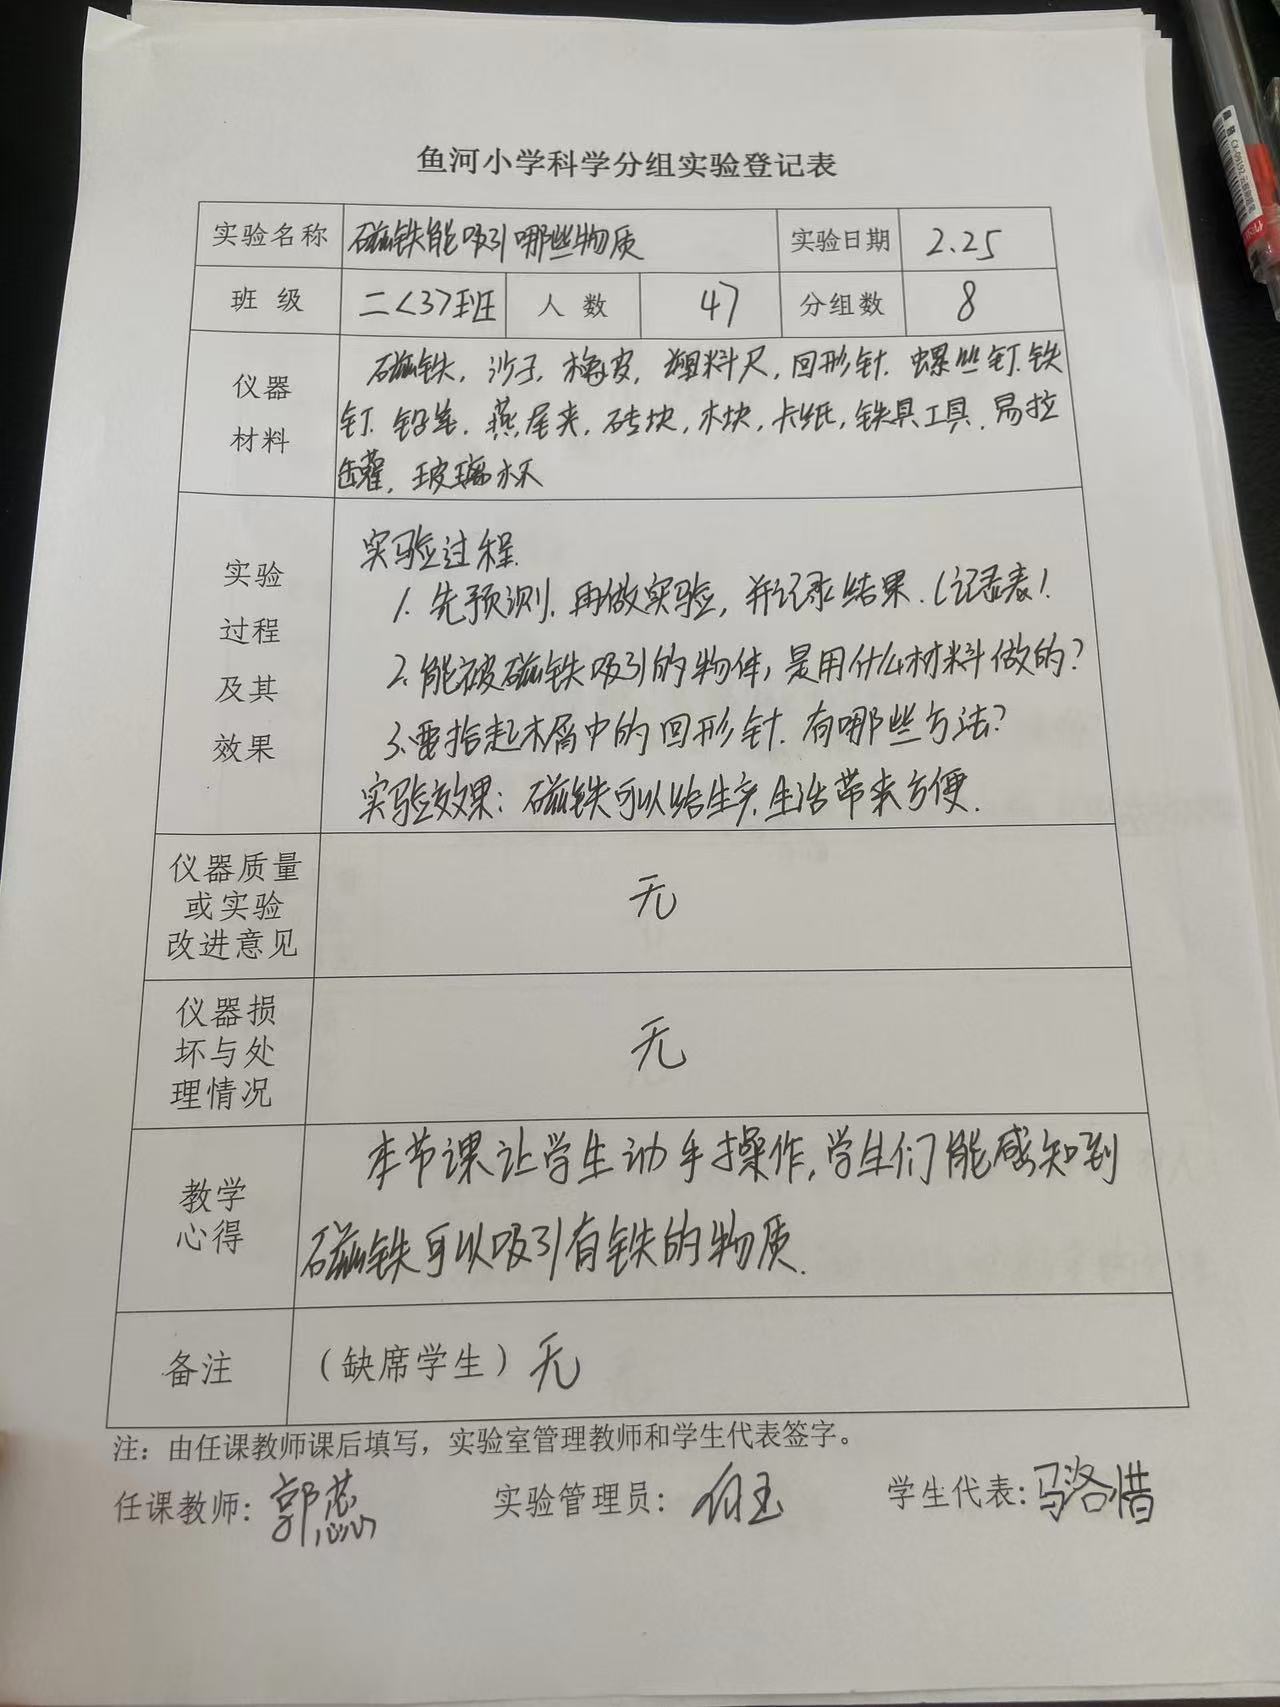 鱼河小学科学分组实验登记表
实验名称 磁铁能吸引哪些物质 实验日期 2.25
班级 二<3>班 人数 47 分组数 8
仪器
材料
磁铁,沙子,橡皮,塑料尺,回形针.螺丝钉.铁
钉.铅笔.燕尾夹,砖块,木块,卡纸,铁具工具.易拉
罐.玻璃杯
实验
过程
及其
效果
实验过程.
1.先预测.再做实验,并记录结果.(记录表).
2.能被磁铁吸引的物体,是用什么材料做的?
3.要拾起木屑中的回形针.有哪些方法?
实验效果:磁铁可以给生产.生活带来方便.
仪器质量
或实验
改进意见
无
仪器损
坏与处
理情况
无
教学
心得
本节课让学生动手操作,学生们能感知到
磁铁可以吸引有铁的物质.
备注 (缺席学生)无
注：由任课教师课后填写，实验室管理教师和学生代表签字。
任课教师: 郭蕊 实验管理员: 学生代表:马洛惜